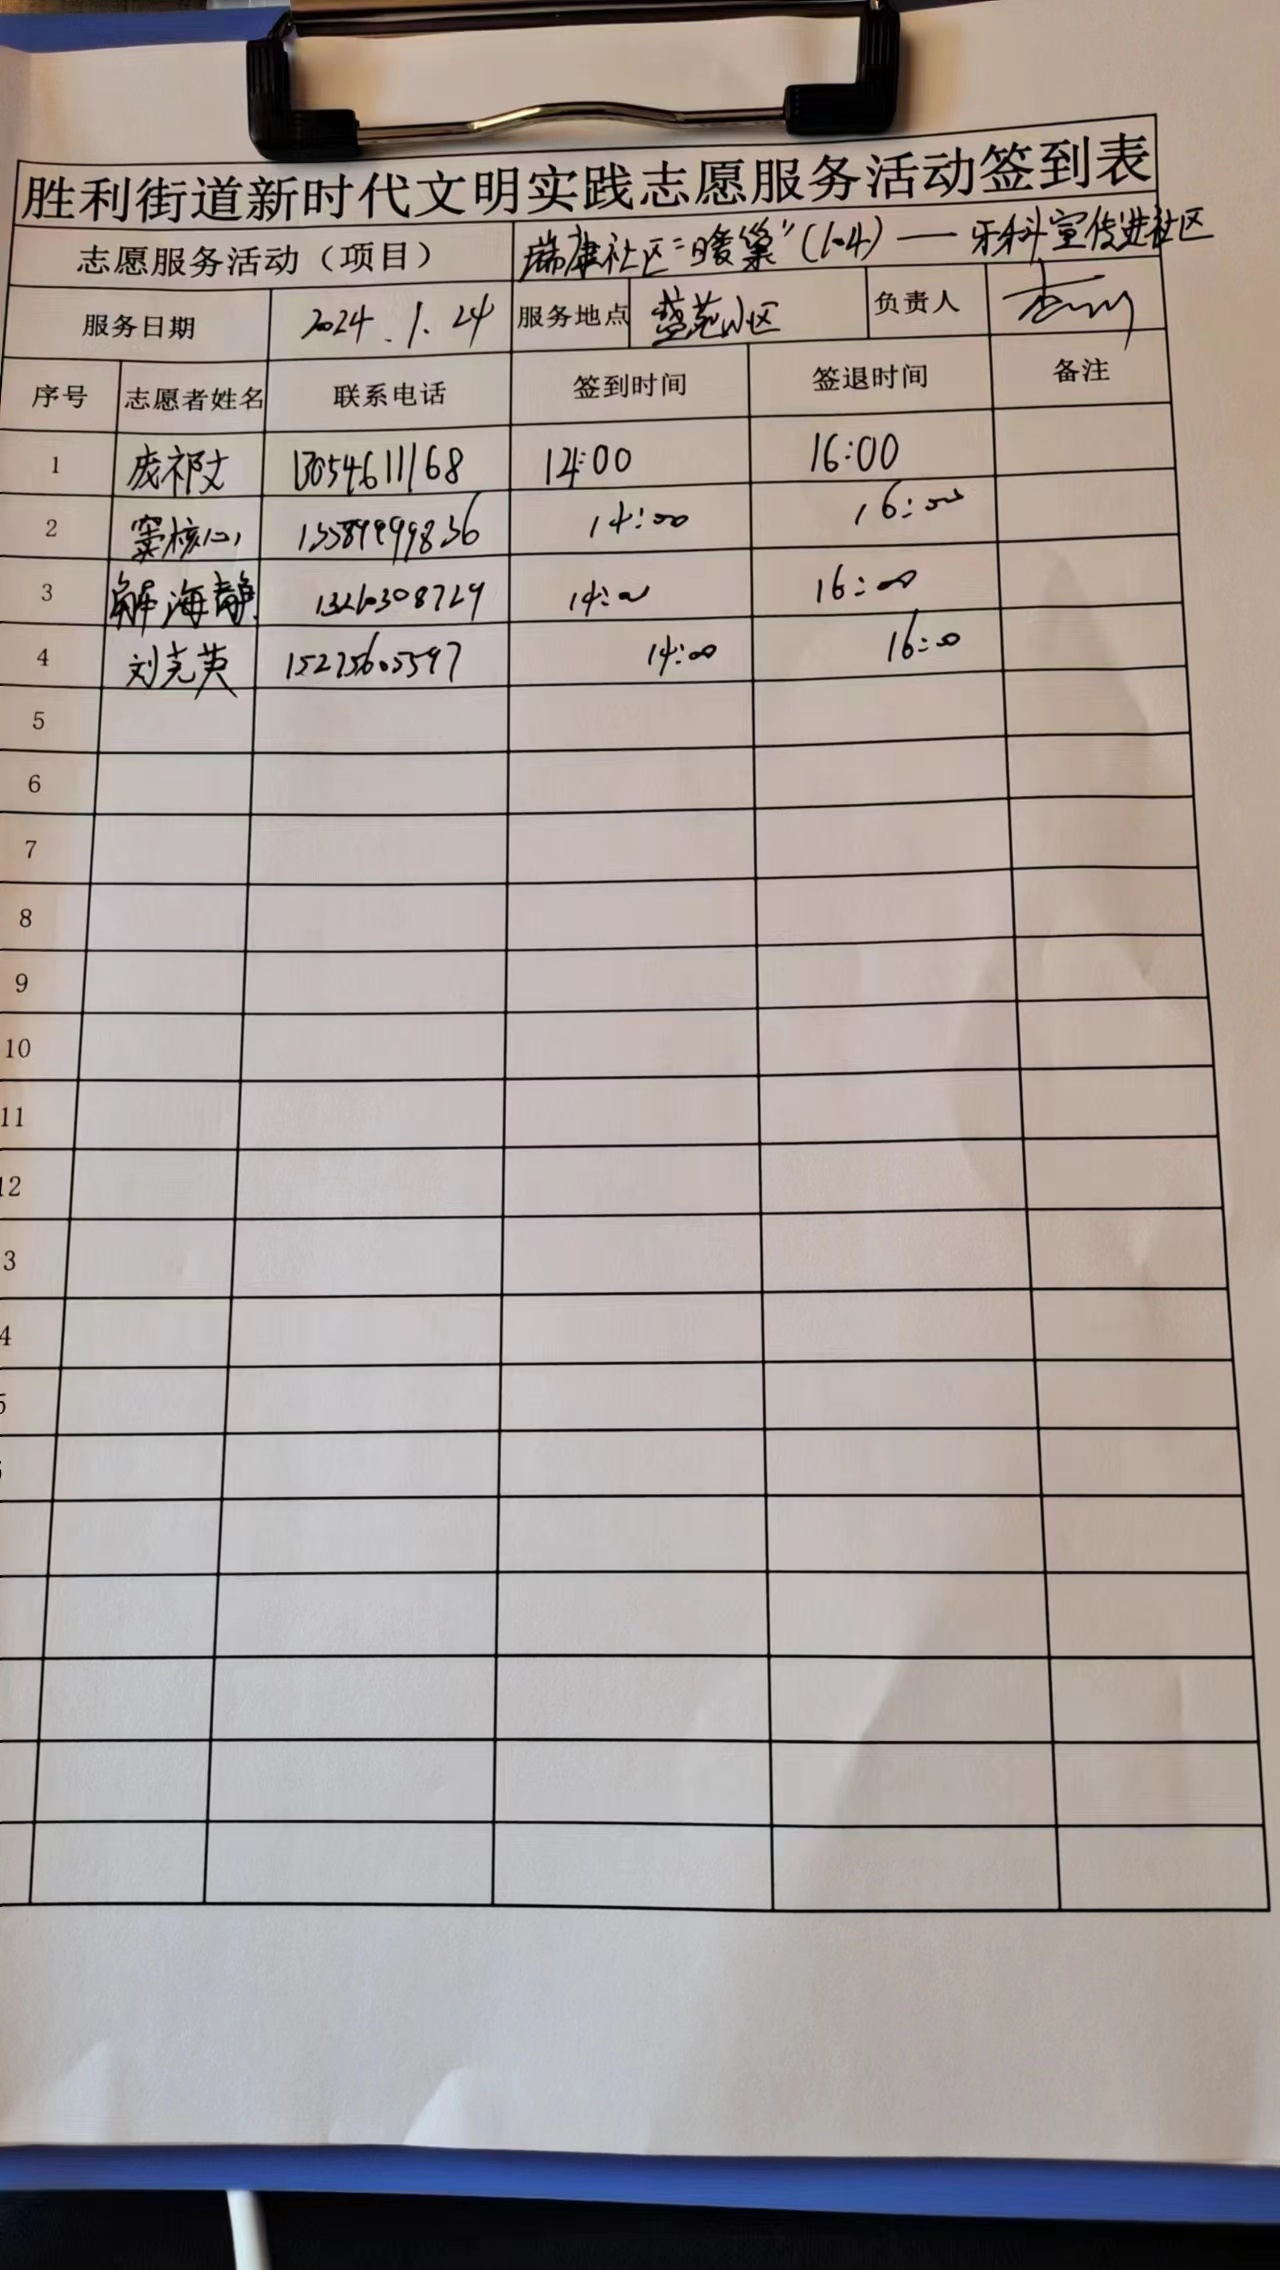 胜利街道新时代文明实践志愿服务活动签到表
志愿服务活动（项目） 瑞康社区"暖巢"(1-4)——牙科宣传进社区
服务日期 2024.1.24 服务地点 盛苑小区 负责人
序号 志愿者姓名 联系电话 签到时间 签退时间 备注
1 庞祁文 13054611168 14:00 16:00
2 窦核心 14:00 16:00
3 解海静 14:00 16:00
4 刘克英 14:00 16:00
5
6
7
8
9
10
11
12
3
4
5